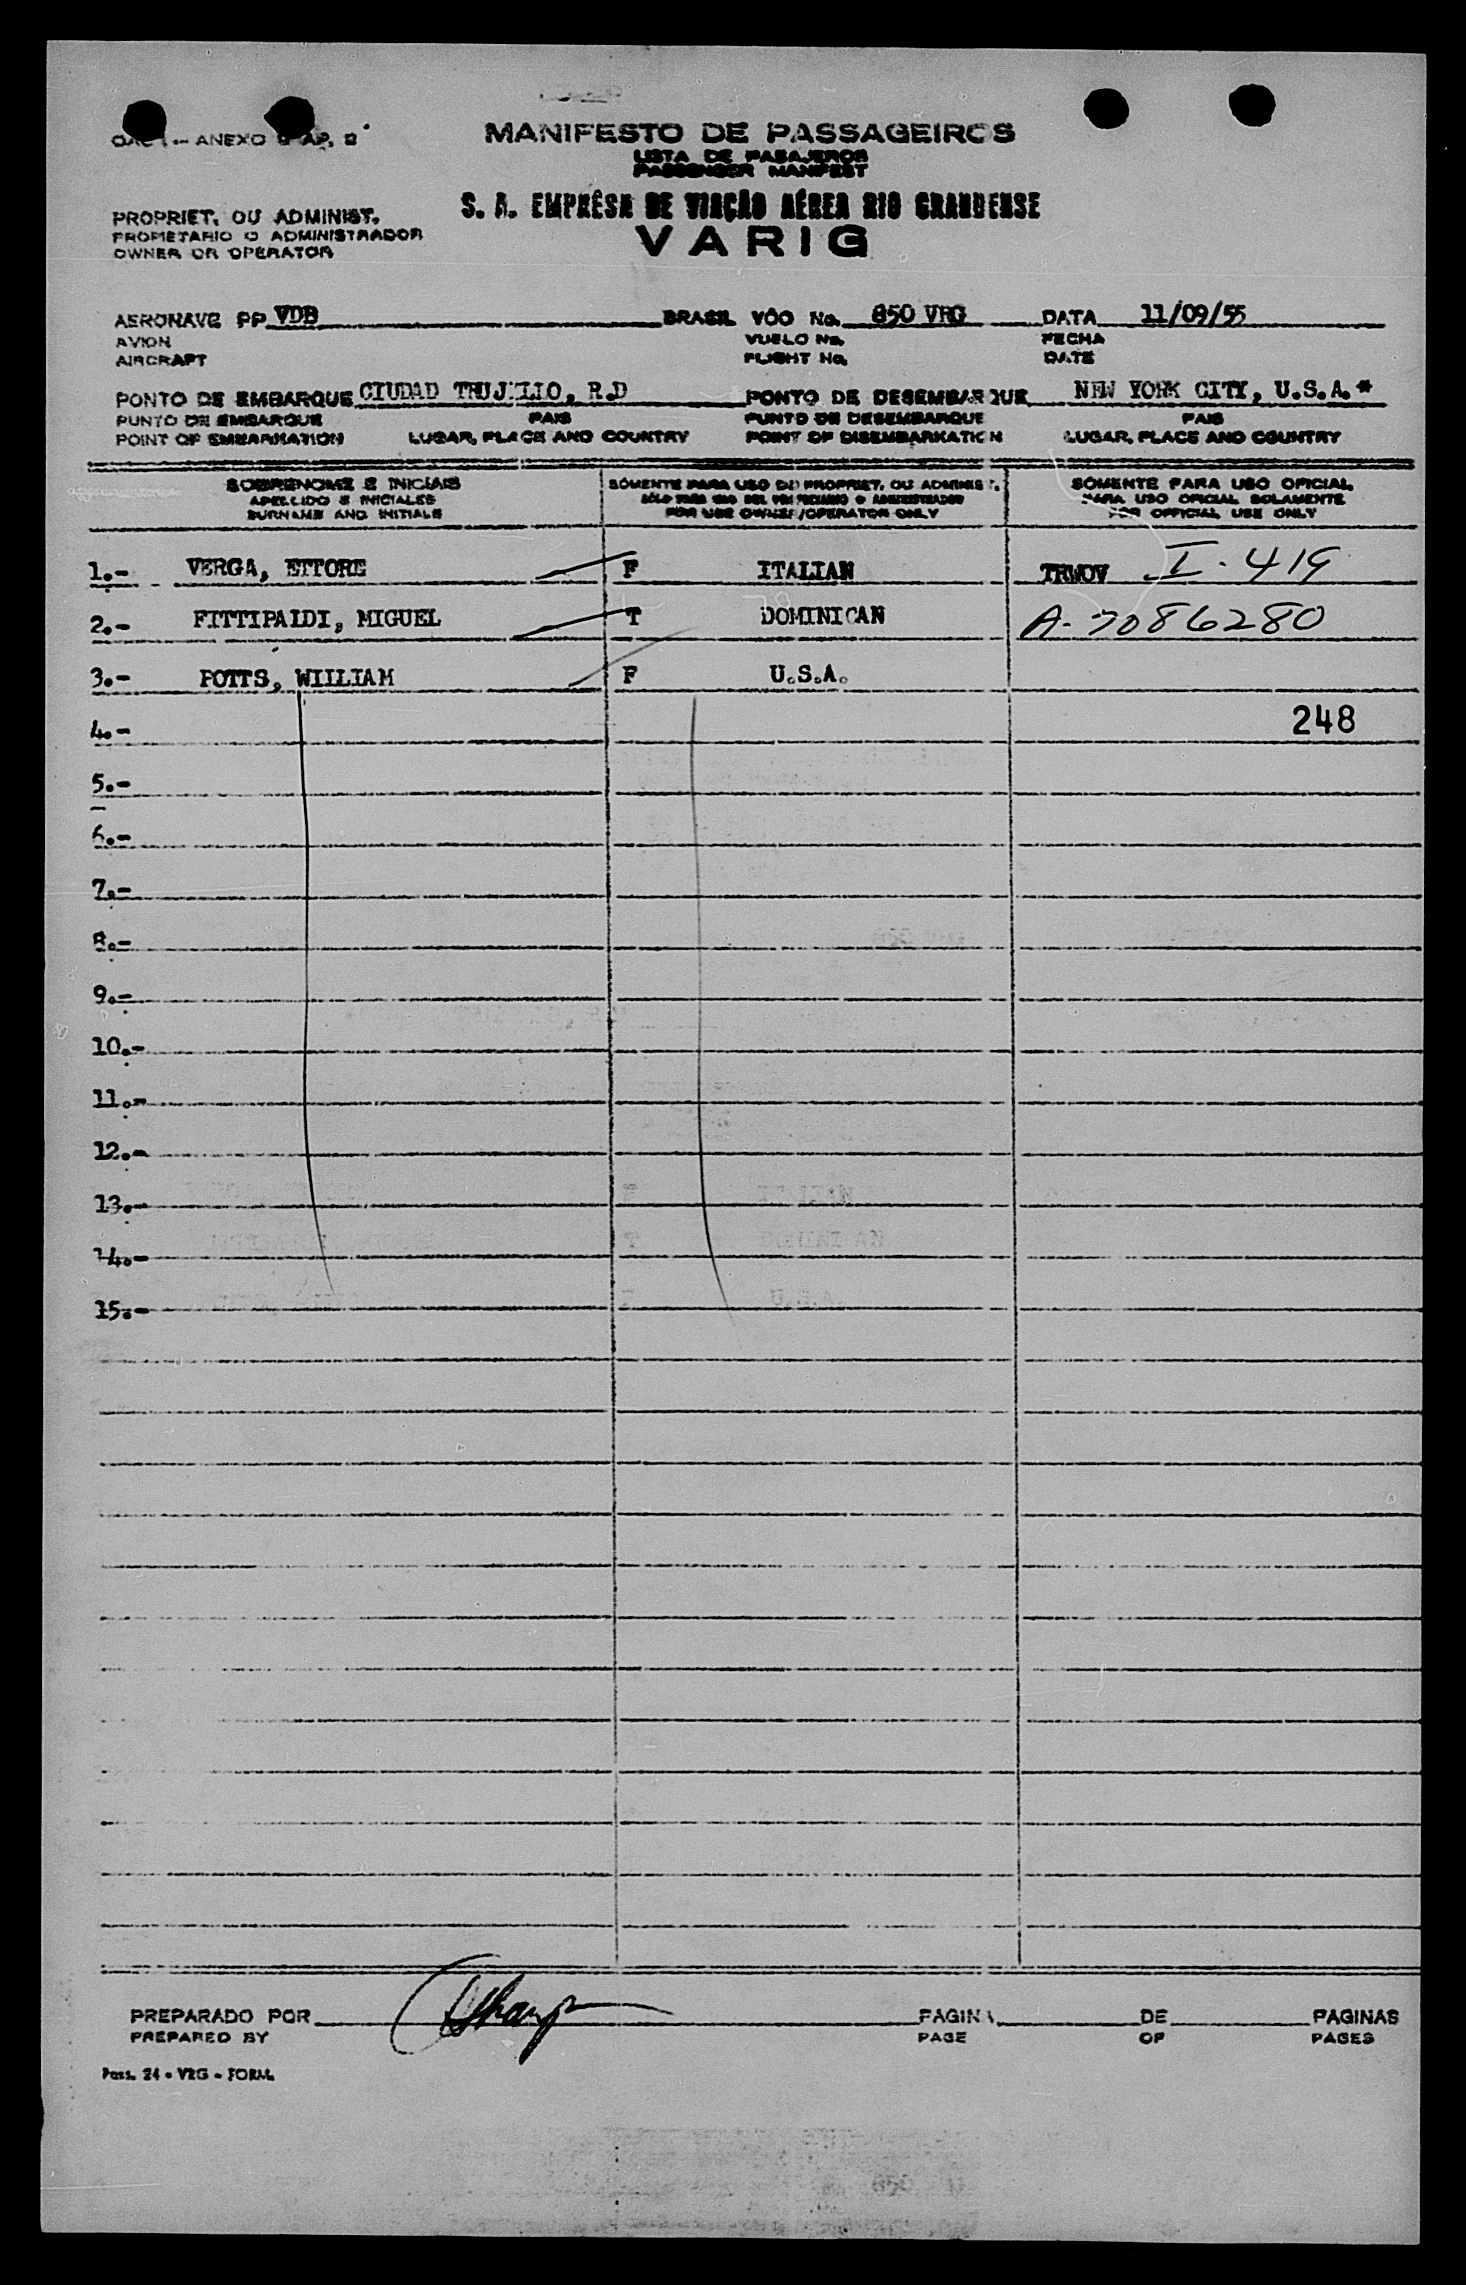 ANEXO
MANIFESTO DE PASSAGEIROS
LISTA DE PASAJEROS
PASSENGER MANIFEST
PROPRIET. OU ADMINIST.
PROPIETARIO O ADMINISTRADOR
OWNER OR OPERATOR
S. A. EMPRÊSA DE VIAÇÃO AÉREA RIO GRANDENSE
VARIG
AERONAVE PP VDB BRASIL VÔO No. 850 VRG DATA 11/09/55
AVION VUELO No. FECHA
AIRCRAFT FLIGHT No. DATE
PONTO DE EMBARQUE CIUDAD TRUJILLO, R.D PONTO DE DESEMBARQUE NEW YORK CITY, U.S.A.*
PUNTO DE EMBARQUE PAIS PUNTO DE DESEMBARQUE PAIS
POINT OF EMBARKATION LUGAR, PLACE AND COUNTRY POINT OF DISEMBARKATION LUGAR, PLACE AND COUNTRY
SOBRENOME E INICIAIS SÓMENTE PARA USO DO PROPRIET. OU ADMINIST. SÓMENTE PARA USO OFICIAL
APELLIDO E INICIALES SÓLO PARA USO DEL PROPIETARIO O ADMINISTRADOR PARA USO OFICIAL SOLAMENTE
SURNAME AND INITIALS FOR USE OWNER/OPERATOR ONLY FOR OFFICIAL USE ONLY
1.- VERGA, ETTORE F ITALIAN TRWOV I-419
2.- FITTIPAIDI, MIGUEL T DOMINICAN A-7086280
3.- POTTS, WIILIAM F U.S.A.
4.- 248
5.-
6.-
7.-
8.-
9.-
10.-
11.-
12.-
13.-
14.-
15.-
PREPARADO POR PAGINA DE PAGINAS
PREPARED BY PAGE OF PAGES
Pass. 24 - VRG - FORM.